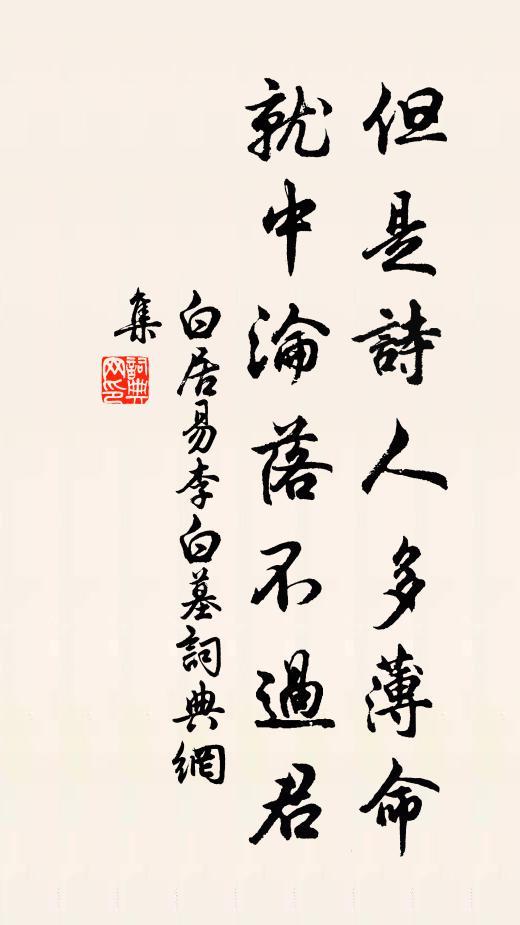 但是詩人多薄命
就中淪落不過君
白居易李白墓詞典網
集
詞典
网印